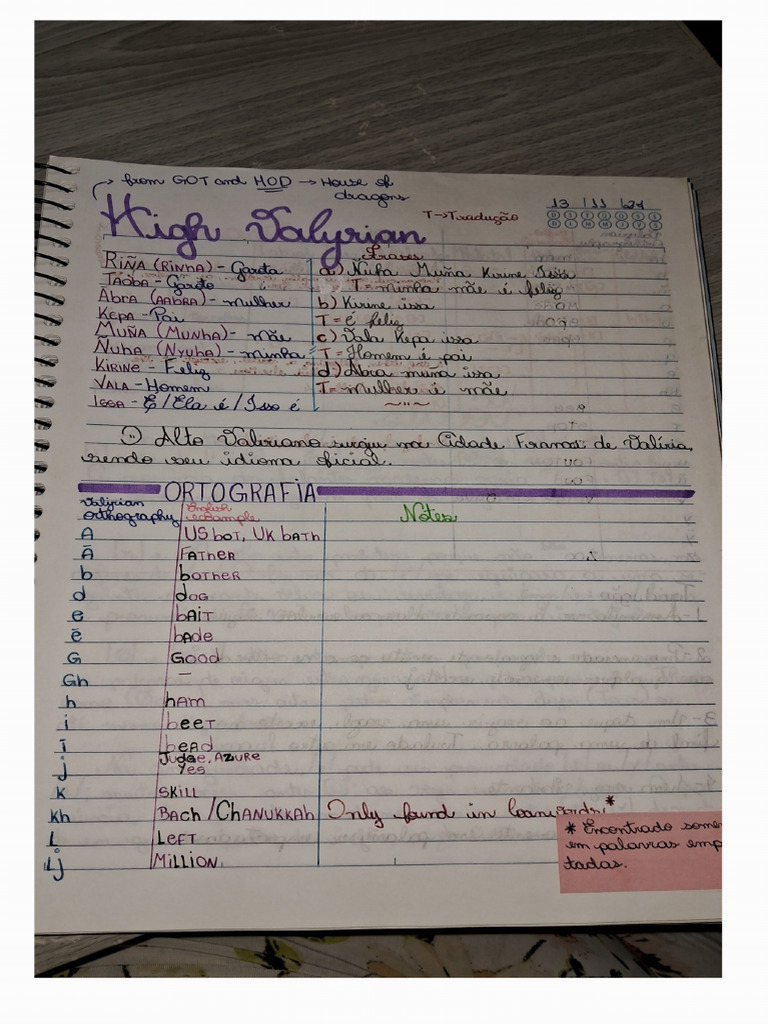 → from GOT and HOD → House of
dragons
13 / 11 / 24
T → Tradução
High Valyrian
Frases
Riña (Rinha) - Garota
a) Ñuha Muña Kirine Issa
Taoba - Garoto
T = minha mãe é feliz
Abra (Aabra) - mulher
b) Kirine issa
Kepa - Pai
T = é feliz
Muña (Munha) - mãe
c) Vala Kepa issa
Ñuha (Nyuha) - minha
T = Homem é pai
Kirine - Feliz
d) Abra muña issa
Vala - Homem
T = mulher é mãe
Issa - É / Ela é / Isso é
Alto Valiriano surgiu na Cidade Franca de Valíria,
sendo seu idioma oficial.
ORTOGRAFIA
Valyrian orthography
English example
Notes
A US bot, UK bath
Ā Father
b bother
d dog
e bait
ē bade
G Good
Gh —
h ham
i beet
ī bead
j Judge, Azure
Yes
k skill
kh Bach / Chanukkah Only found in loanwords*
L Left
Lj Million
* Encontrado
em palavras
tadas.